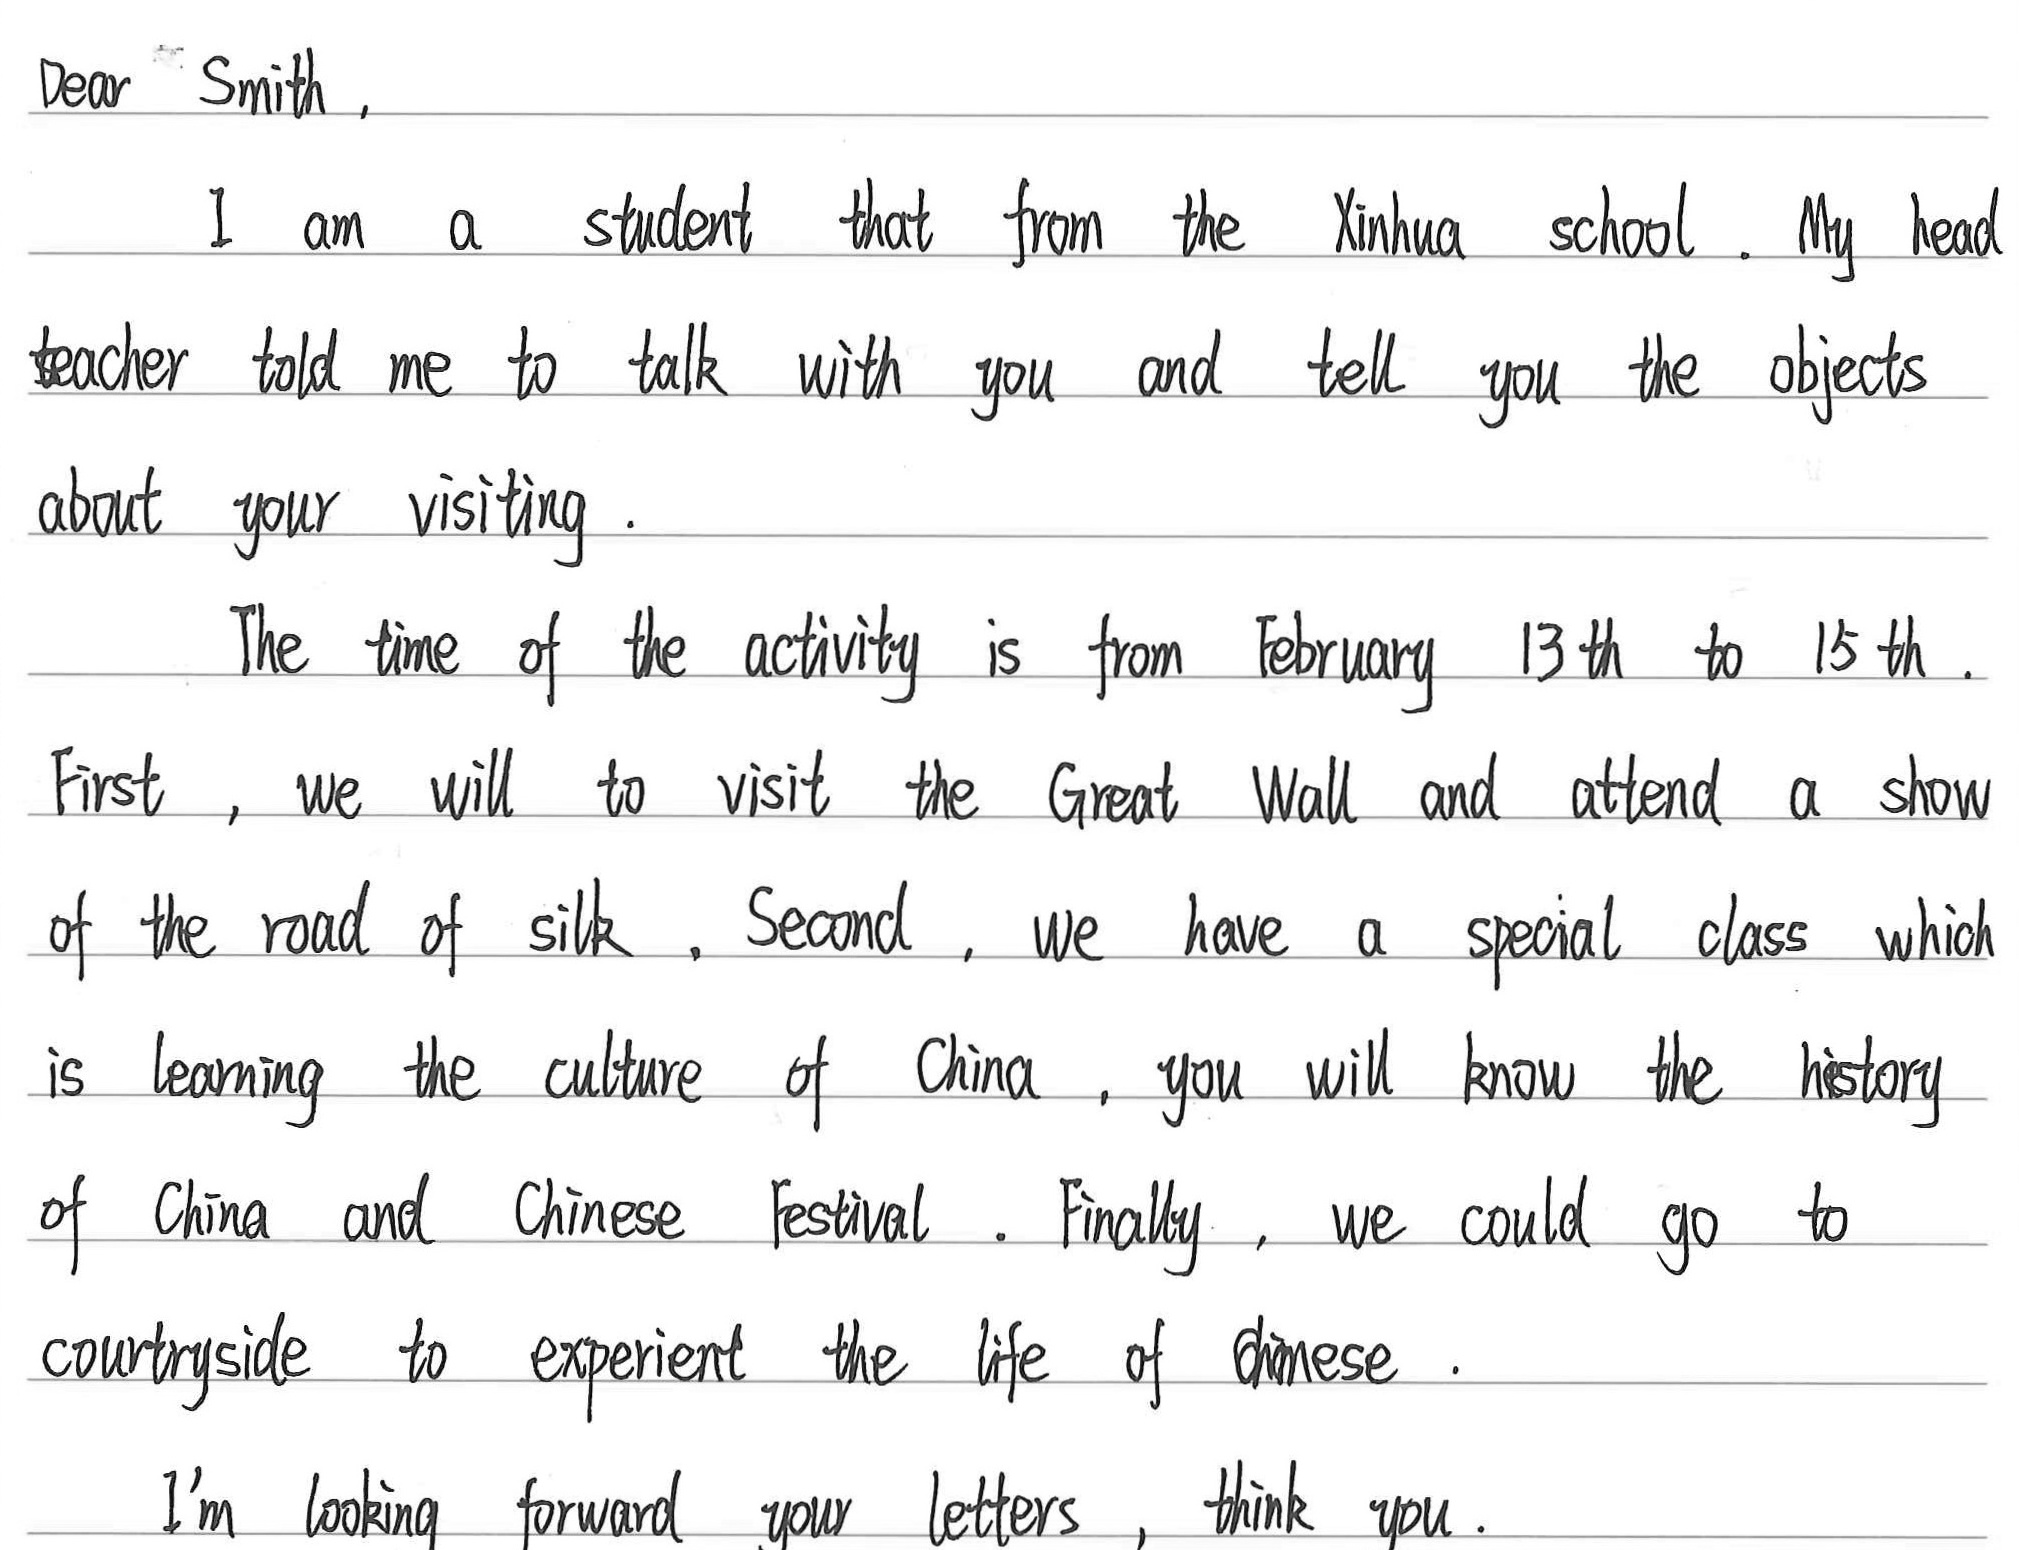 Dear Smith,
I am a student that from the Xinhua school. My head
teacher told me to talk with you and tell you the objects
about your visiting.
The time of the activity is from February 13th to 15th.
First, we will to visit the Great Wall and attend a show
of the road of silk. Second, we have a special class which
is learning the culture of China, you will know the history
of China and Chinese Festival. Finally, we could go to
courtryside to experient the life of Chinese.
I'm looking forward your letters, think you.